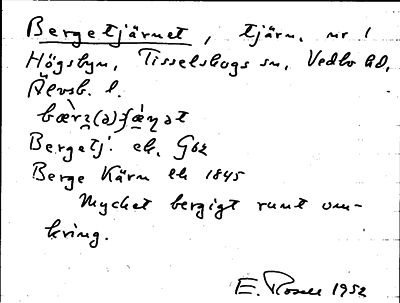 Bergetjärnet, tjärn, nr 1
Högsbyn, Tisselskogs sn, Vedbo hd,
Älvsb. l.
bær̀ʒ(ə)ʃæ̀ɳət
Bergetj. ek. G62
Berge Kärn ek 1845
Mycket bergigt runt om-
kring.
E. Rosell 1952